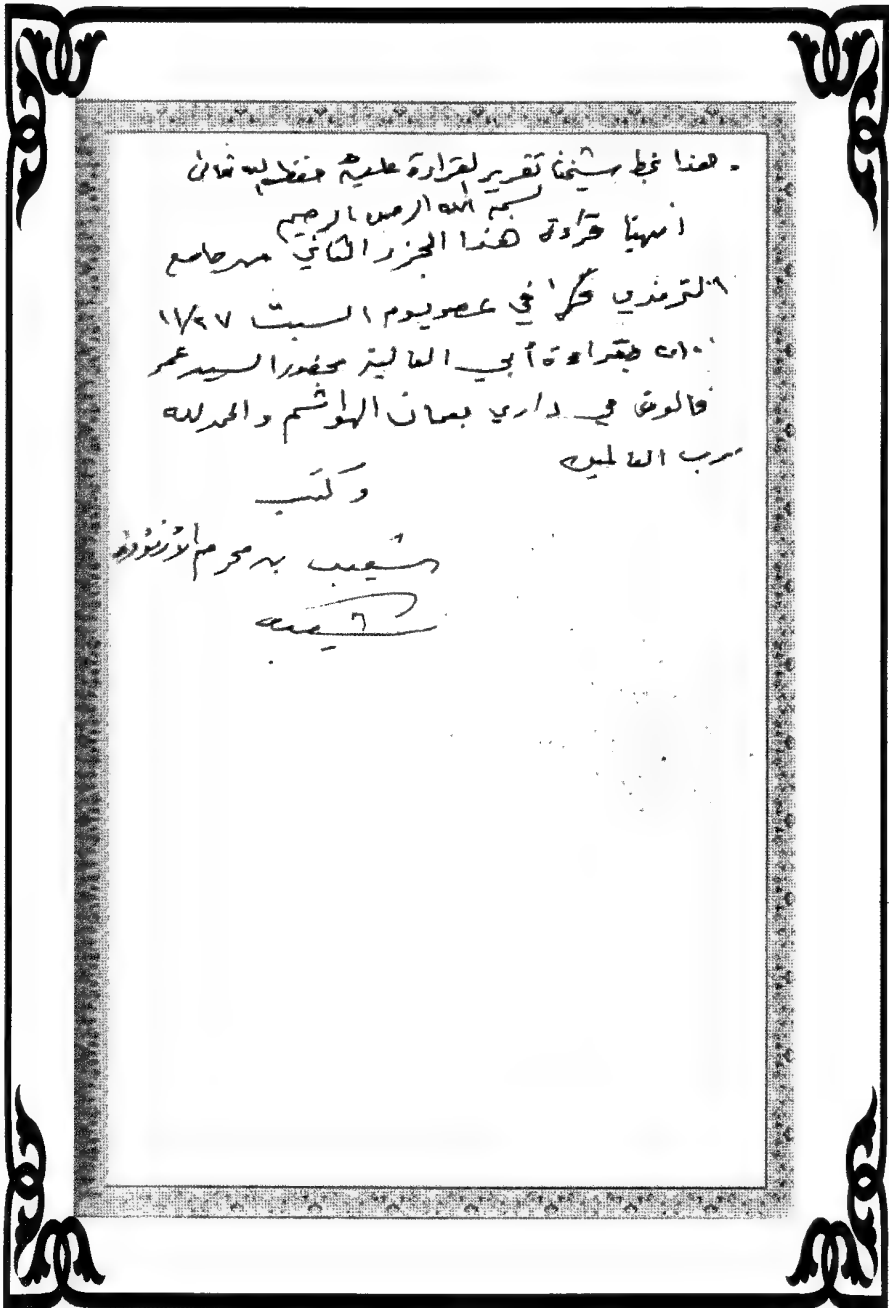 . هذا بخط شيخنا تقرير لقراءة عليه حفظه الله تعالى
بسم الله الرحمن الرحيم
انهينا قراءة هذا الجزء الثاني من جامع
الترمذي في عصر يوم السبت ١١/٢٧
بقراءة أبي العالية محضور السيد عمر
في داري بعمان الهواشم والحمد لله
رب العالمين
وكتب
شعيب بن محرم الأرنؤوط
شعيب